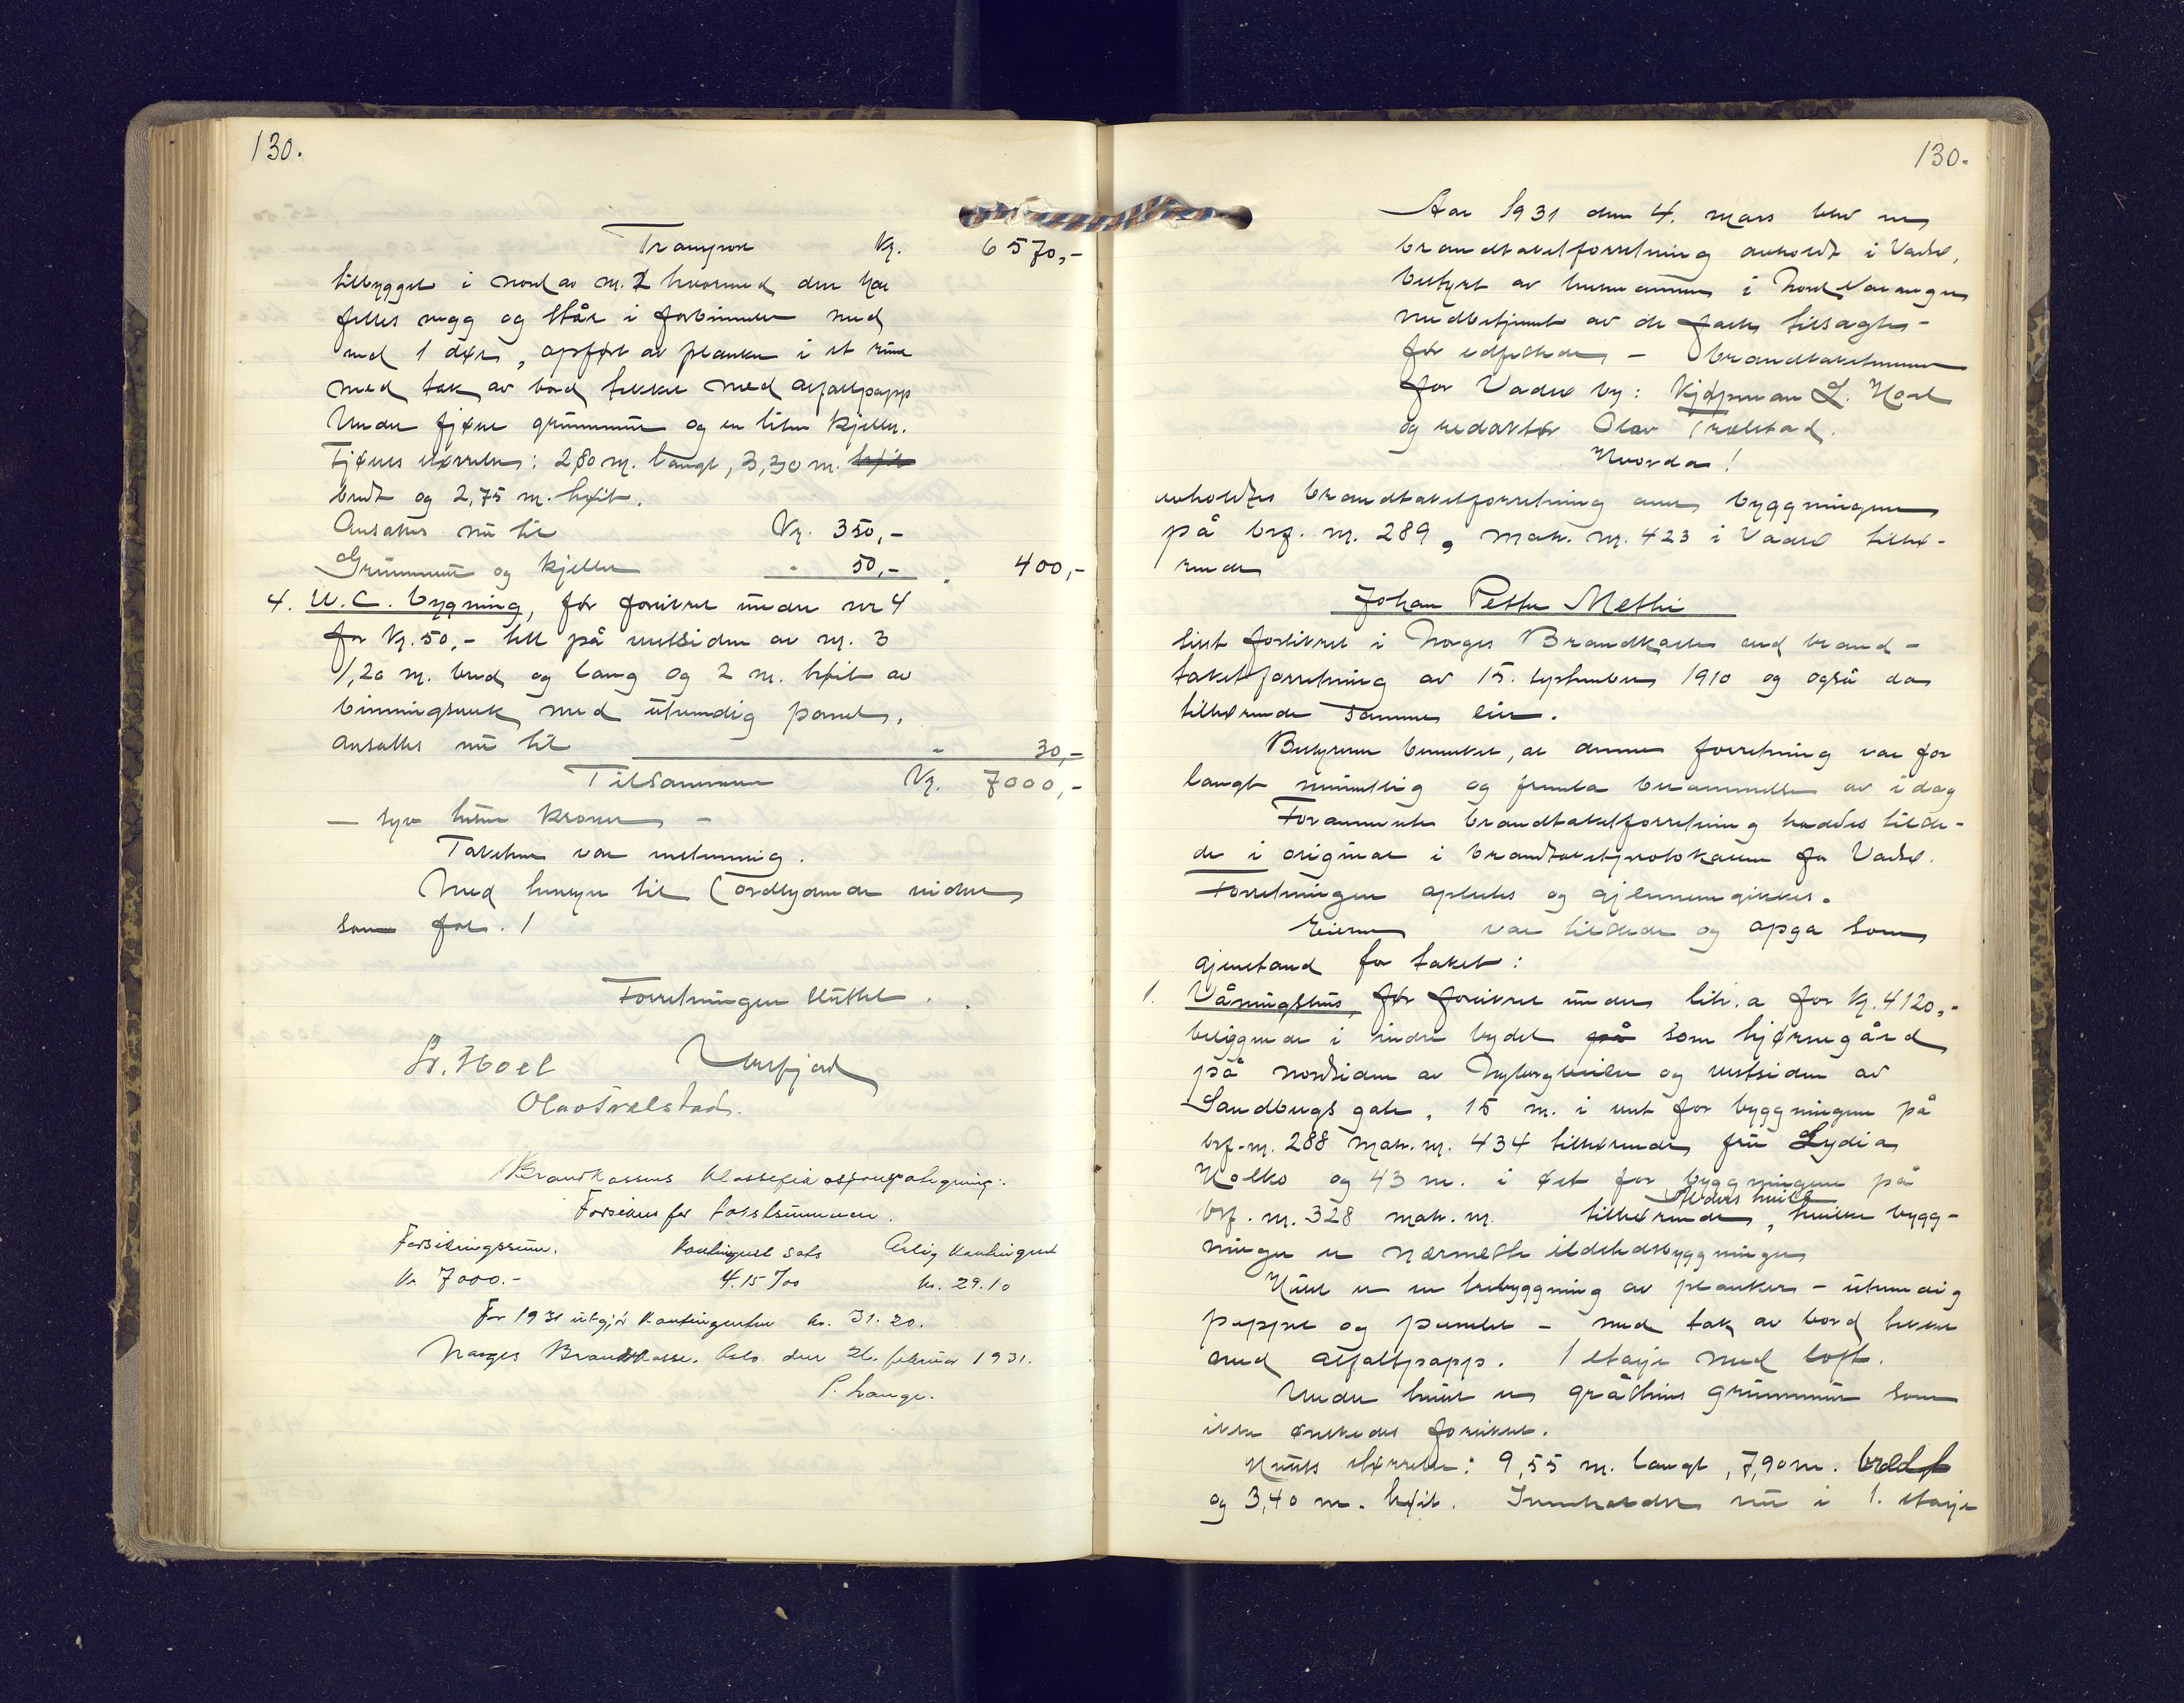 130.
Transport Kr. 6570,-
tilbygget i nord av nr. 2 hvormed den har
felles vegg og står i forbinnelse med
med 1 dør, opført av planker i et rum
med tak av bord tekket med asfaltpapp
Under fjøset grunnmur og en liten kjeller.
Fjøsets størrelse: 2,80 m. langt, 3,30 m. høit
bredt og 2,75 m. høit.
Ansattes nu til Kr. 350,-
Grunnmur og kjeller " 50,- " 400,-
4. W.C. bygning, før forsikret under nr 4
for Kr. 50,- tett på vestsiden av nr. 3
1,20 m. bred og lang og 2 m. høit av
binningsverk med utvendig panel,
ansattes nu til " 30,-
Tilsammen Kr. 7000,-
- syv tusen kroner -
Taksten var enstemmig.
Med hensyn til (ordlydende videre
som fol. 1
Forretningen sluttet.
Sv. Hoel
Olav Trælstad.
Brandkassens klassifikasjonspåtegning:
Forsikres for takstsummen.
Forsikringssum. Kontingent sats Årlig kontingent
Kr 7000.- 4.15 ‰ kr. 29.10
For 1931 utgjør kontingenten kr. 31.20.
Norges Brandkasse. Oslo den 26. februar 1931.
P. Lange.
130.
Aar 1931 den 4. mars blev en
brandtakstforretning avholdt i Vadsø,
bestyrt av lensmannen i Nord Varanger
medbetjent av de faste tilsagte -
før edfestede - brandtakstmenn
for Vadsø by: Kjøpman S. Hoel
og redaktør Olav Trælstad.
Hvorda!
avholdtes brandtakstforretning over byggningene
på brf. nr. 289, matr. nr. 423 i Vadsø tilhø-
rende
Johan Petter Methi
sist forsikret i Norges Brandkasse ved brand-
takstforretning av 15. september 1910 og også da
tilhørende samme eier.
Bestyreren bemerket, at denne forretning var for
langt muntlig og fremla berammelse av idag
Forannevnte brandtakstforretning havdes tilste-
de i original i brandtakstprotokollen for Vadsø.
Forretningen oplestes og gjennemgikkes.
Eieren var tilstede og opga som
gjenstand for takst:
1. Våningshus, før forsikret under litr. a for Kr. 4120,-
beliggende i indre bydel på som hjørnegård
på nordsiden av Nyborgveien og vestsiden av
Sandbergs gate, 15 m. i vest for byggningen på
brf. nr. 288 matr. nr. 434 tilhørende fru Lydia
Holko og 43 m. i øst for byggningene på
Anders
brf. nr. 328 matr. nr. tilhørende, hvilke bygg-
ninger er nærmeste ildstedsbyggninger
Huset er en trebyggning av planker - utvendig
pappet og panelet - med tak av bord tekket
med asfaltpapp. 1 etasje med loft.
Under huset er gråstens grunnmur som
ikke ønskedes forsikret.
Husets størrelse: 9,55 m. langt, 7,90 m. bredt
og 3,40 m. høit. Inneholder nu i 1. etasje